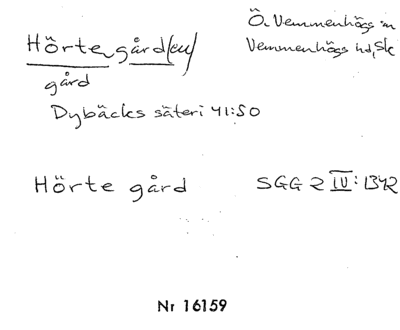 Hörte gård(en)
Ö. Vemmenhögs sn
Vemmenhögs hd, Sk
gård
Dybäcks säteri 41:50
Hörte gård
SGG 2 IV: 1342
Nr 16159